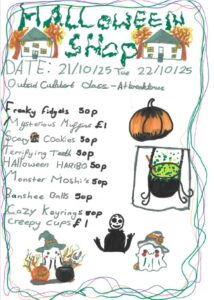 HALLOWEEN
SHOP
DATE: 21/10/25 Tue 22/10/25
Outsid Cuthbert Class - At breaktime
Freaky Fidgets 50p
Mysterious Muffins £1
Scary Cookies 50p
Terrifying Teeth 50p
Halloween HARIBO 50p
Monster Moshi's 50p
Banshee Balls 50p
Cozy Keyrings 50p
creepy cups £1